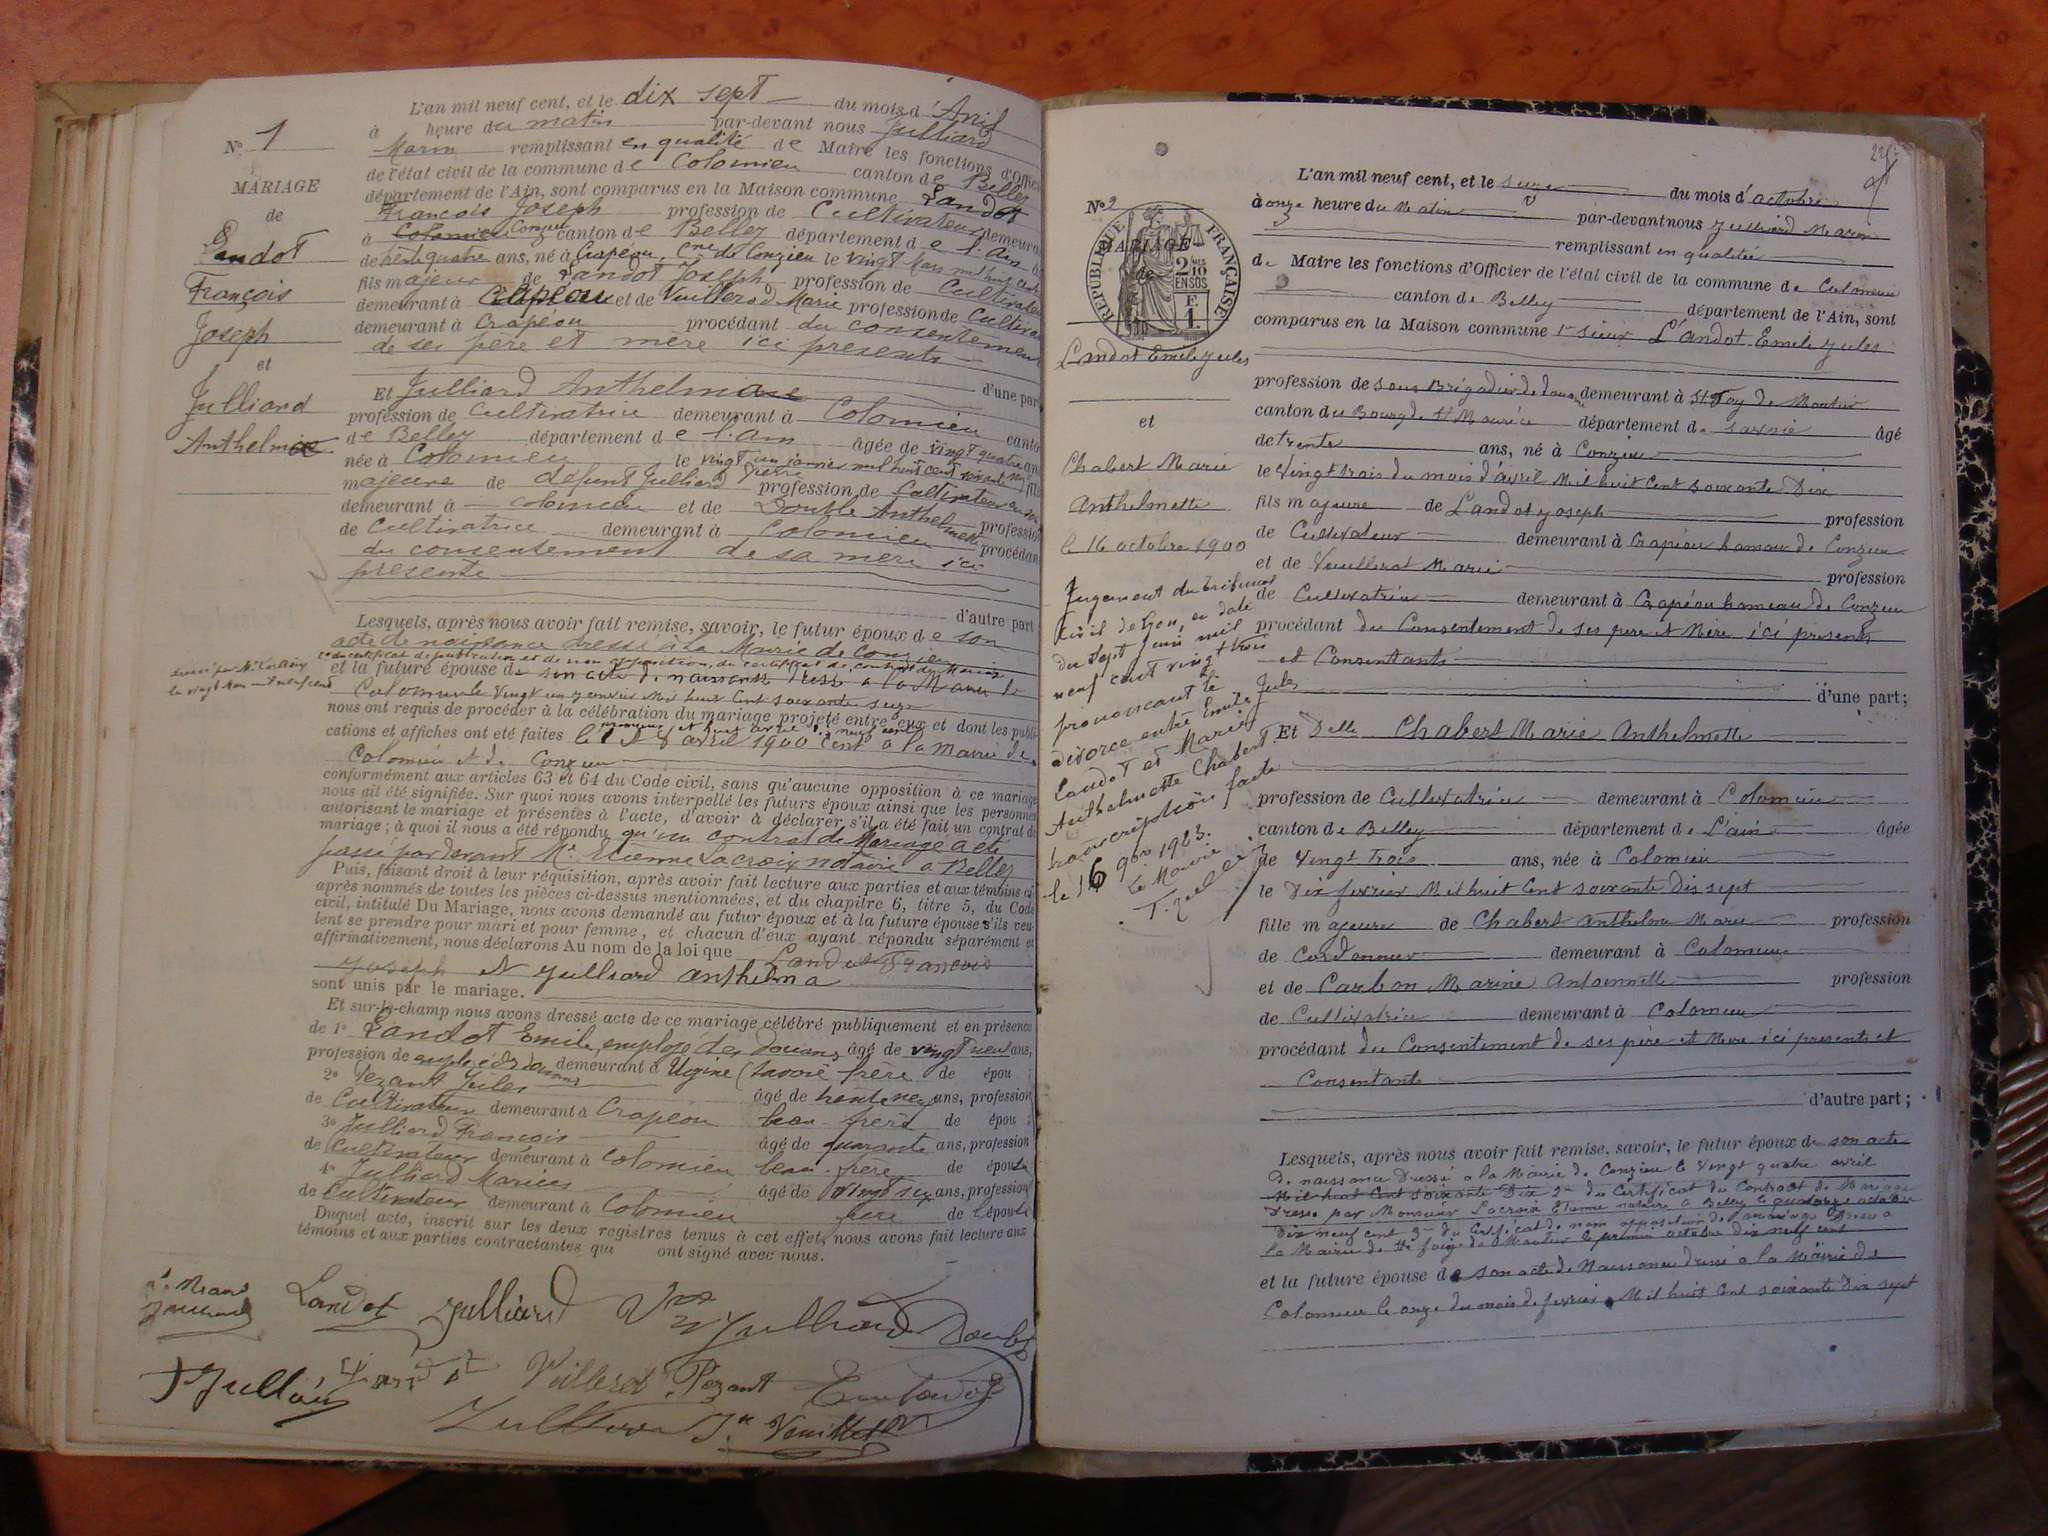 L'an mil neuf cent, et le dix sept du mois d'Avril
à heure du matin par-devant nous Julliard
Marin remplissant en qualité de Maire les fonctions d'Offic
de l'état civil de la commune de Colomieu canton de Belley
département de l'Ain, sont comparus en la Maison commune Landot
François Joseph profession de Cultivateur demeura
à Colomieu Conzieu canton de Belley département de l'Ain
de trente quatre ans, né à Crapéou, Cne de Conzieu le vingt Mars mil huit cent
fils majeur de Landot Joseph profession de Cultivateur
demeurant à Crapéou et de Vuillerod Marie profession de Cultiva
demeurant à Crapéou procédant du consentement
de ses père et mère ici présents
d'une part
Et Julliard Anthelmine
profession de Cultivatrice demeurant à Colomieu canton
de Belley département de l'ain âgée de vingt quatre ans
née à Colomieu le vingt un janvier mil huit cent soixante seize fille
majeure de défunt Julliard Pierre profession de Cultivateur
demeurant à Colomieu et de Double Anthelmette profession
de Cultivatrice demeurant à Colomieu procédan
du consentement de sa mère ici
présente
d'autre part
Lesquels, après nous avoir fait remise, savoir, le futur époux de son
acte de naissance dressé à la Mairie de Conzieu
certificat de publication et de non opposition, du certificat de contrat de Mariage
et la future épouse de son acte de naissance dressé a la Mairie de
Colomieu le vingt un Janvier Mil huit Cent soixante seize
nous ont requis de procéder à la célébration du mariage projeté entre eux et dont les publi
cations et affiches ont été faites le 1 et 8 avril 1900 à la mairie de
Colomieu et de Conzieu
conformément aux articles 63 et 64 du Code civil, sans qu'aucune opposition à ce mariage
nous ait été signifiée. Sur quoi nous avons interpellé les futurs époux ainsi que les personnes
autorisant le mariage et présentes à l'acte, d'avoir à déclarer s'il a été fait un contrat de
mariage ; à quoi il nous a été répondu qu'un contrat de Mariage a été
passé par devant Me Etienne Lacroix notaire a Belley
Puis, faisant droit à leur réquisition, après avoir fait lecture aux parties et aux témoins ci-
après nommés de toutes les pièces ci-dessus mentionnées, et du chapitre 6, titre 5, du Code
civil, intitulé Du Mariage, nous avons demandé au futur époux et à la future épouse s'ils veu-
lent se prendre pour mari et pour femme, et chacun d'eux ayant répondu séparément et
affirmativement, nous déclarons Au nom de la loi que Landot François
Joseph et Julliard anthelma
sont unis par le mariage.
Et sur-le-champ nous avons dressé acte de ce mariage célébré publiquement et en présence
de 1° Landot Emile, employé des Douanes âgé de vingt neuf ans,
profession de employé des douanes demeurant à Ugine (Savoie frère de épou
2° Pezant Jules âgé de trente neuf ans, profession
de Cultivateur demeurant à Crapéou beau-frère de épou
3° Julliard François âgé de quarante ans, profession
de Cultivateur demeurant à Colomieu beau-frère de épou
4° Julliard Marius âgé de vingt six ans, profession
de Cultivateur demeurant à Colomieu frère de l'épouse
Duquel acte, inscrit sur les deux registres tenus à cet effet, nous avons fait lecture aux
témoins et aux parties contractantes qui ont signé avec nous.
Landot Julliard Julliard Double
Julliard Vuillerod Pezant
N° 1
MARIAGE
de
Landot
François
Joseph
et
Julliard
Anthelmine
N° 2
RÉPUBLIQUE FRANÇAISE
MARIAGE
de
2/10 EN SUS
F. 1.
Landot Emile Jules
et
Chabert Marie
Anthelmette
le 16 octobre 1900
Jugement du Tribunal
Civil de Lyon, en date
du sept Juin mil
neuf cent vingt trois
prononcant le
divorce entre Emile Jules
Landot et Marie
Anthelmette Chabert.
transcription faite
le 16 9bre 1923.
Le Maire
L'an mil neuf cent, et le seize du mois d'octobre
à onze heure du Matin par-devant nous Julliard Marin
remplissant en qualité
de Maire les fonctions d'Officier de l'état civil de la commune de Colomieu
canton de Belley département de l'Ain, sont
comparus en la Maison commune 1° sieur Landot Emile Jules
profession de sous Brigadier de douane demeurant à St Foy de Moutier
canton du Bourg de St Maurice département de savoie âgé
de trente ans, né à Conzieu
le Vingt trois du mois d'avril Mil huit Cent soixante Dix
fils majeure de Landot Joseph profession
de Cultivateur demeurant à Crapéou hameau de Conzieu
et de Vuillerot Marie profession
de Cultivatrice demeurant à Crapéou hameau de Conzieu
procédant du Consentement de ses père et Mère ici présents
et Consentants
d'une part ;
Et Delle Chabert Marie Anthelmette
profession de Cultivatrice demeurant à Colomieu
canton de Belley département de L'ain âgée
de Vingt Trois ans, née à Colomieu
le Dix fevrier Mil huit Cent soixante Dix sept
fille majeure de Chabert Anthelme Marie profession
de Cordonnier demeurant à Colomieu
et de Carbon Marine Antoinette profession
de Cultivatrice demeurant à Colomieu
procédant du Consentement de ses père et Mère ici présents et
Consentants
d'autre part ;
Lesquels, après nous avoir fait remise, savoir, le futur époux de son acte
De naissance Dressé a la Mairie de Conzieu le Vingt quatre avril
Mil huit Cent soixante Dix 2° du Certificat du Contract de Mariage
Dressé par Monsieur Lacroix Etienne notaire a Belley le quatorze octobre
Dix neuf cent 3° du Certificat de non opposition de mariage Dressé a
la Mairie de Ste foy de Moutier le premier octobre dix neuf cent
et la future épouse de son acte de Naissance dressé a la Mairie de
Colomieu le onze du mois de fevrier Mil huit Cent soixante Dix sept